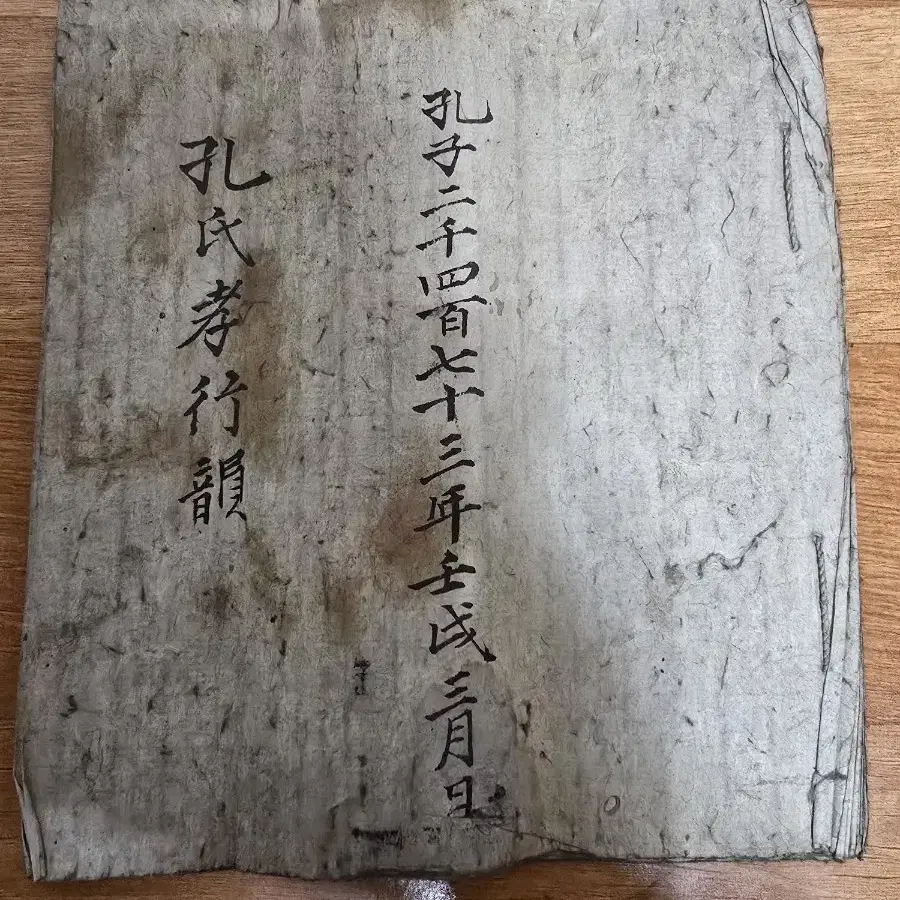 孔子二千四百七十三年壬戌三月日
孔氏孝行韻